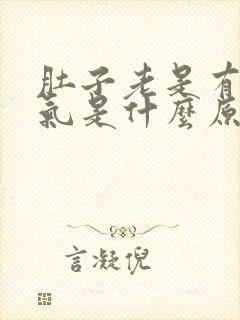 肚子老是有
氣是什麼原
言凝倪